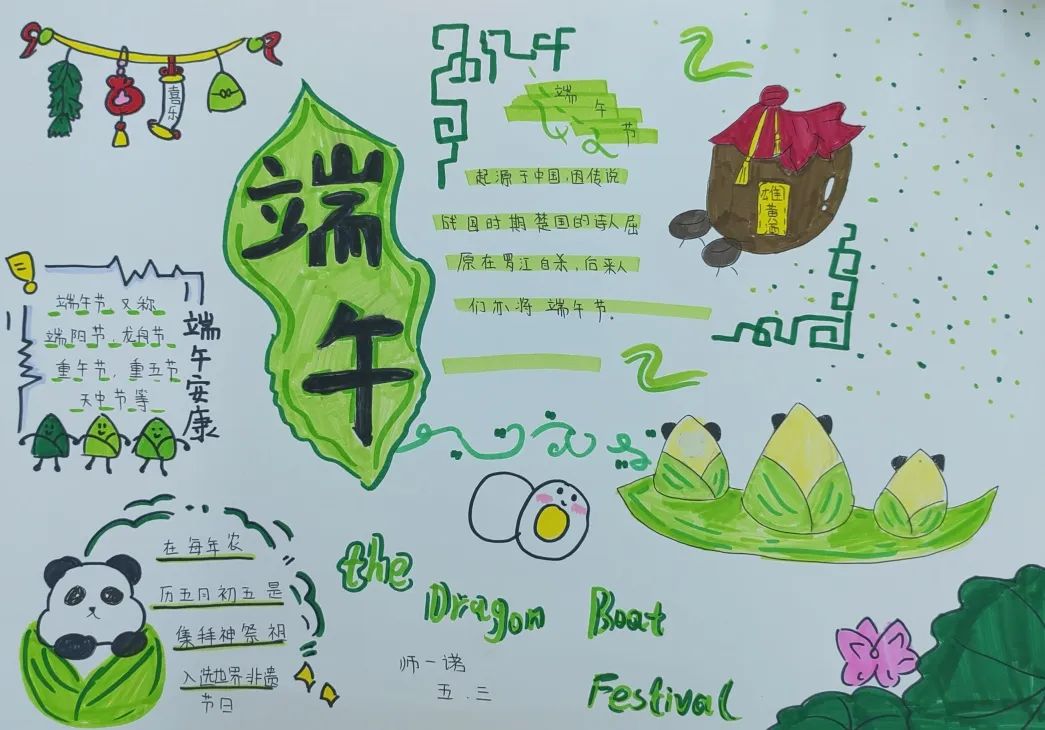 喜乐
端午
端
午
节
起源于中国,因传说
战国时期楚国的诗人屈
原在罗江自杀,后来人
们亦将 端午节。
雄黄酒
端午节 又称
端阳节、龙舟节、
重午节,重五节
天中节等
端午安康
在每年农
历五月初五是
集拜神祭祖
入选世界非遗
节日
the
Dragon Boat
Festival
师一诺
五.三